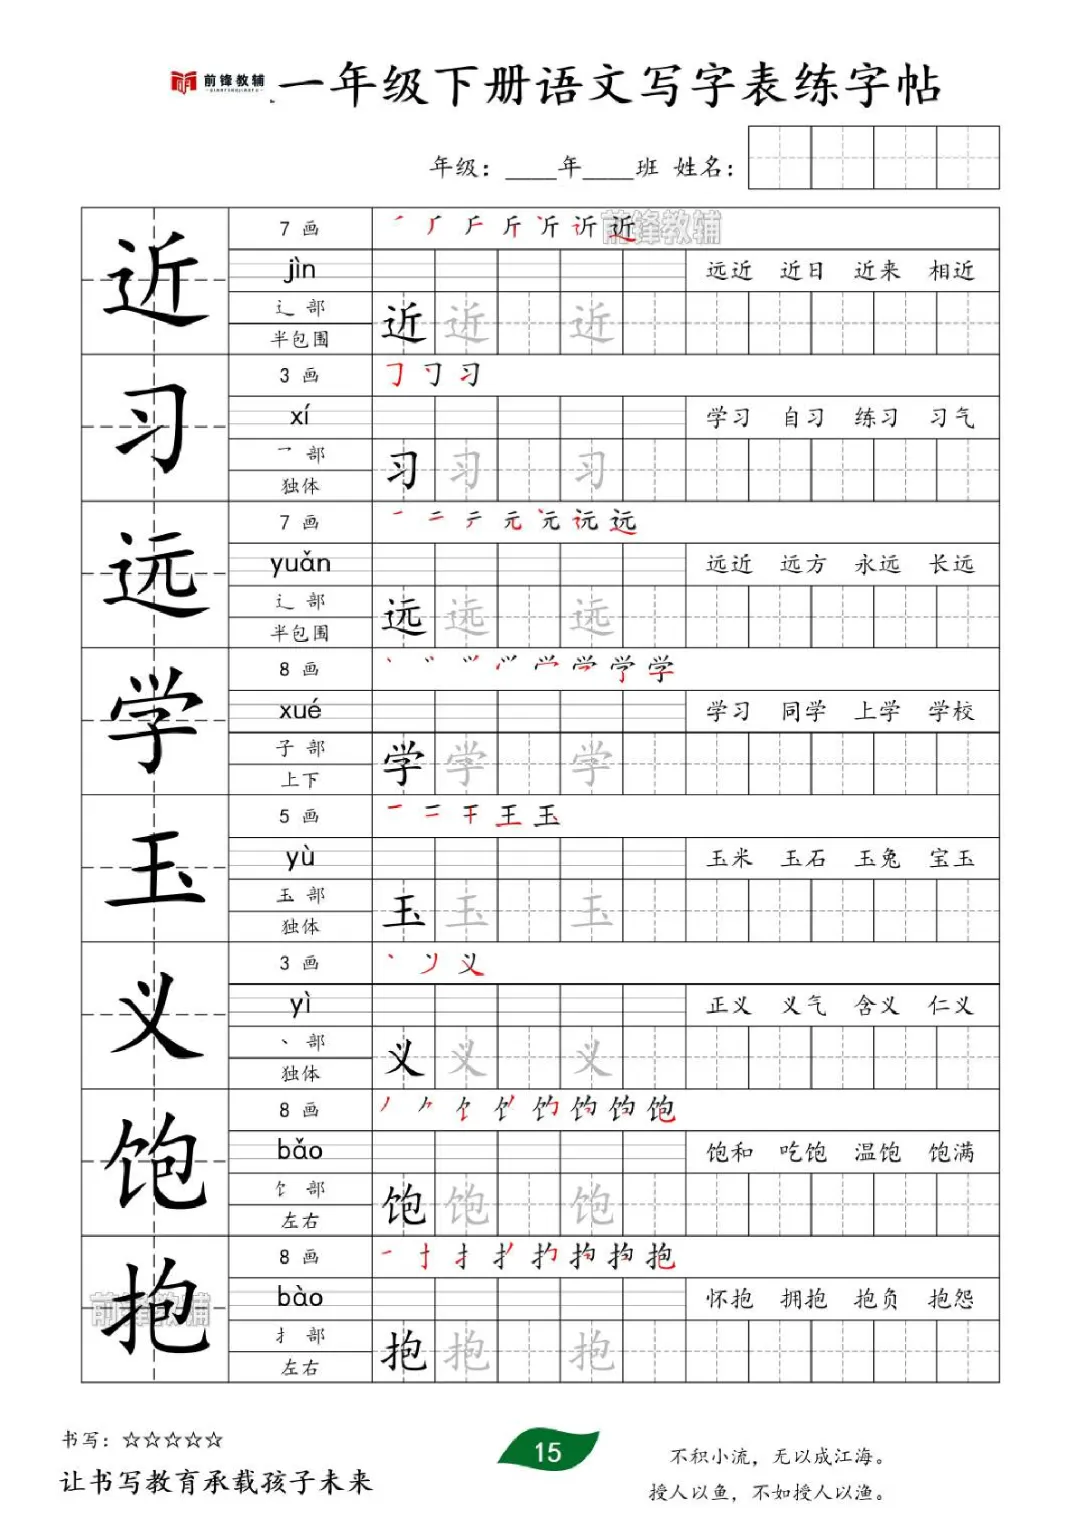 前锋教辅
一年级下册语文写字表练字帖
年级：____年____班 姓名：
近
7 画
丿 厂 斤 斤 沂 䜣 近
前锋教辅
jìn
远近 近日 近来 相近
辶 部
半包围
近 近 近
习
3 画
㇆ 习 习
xí
学习 自习 练习 习气
乛 部
独体
习 习 习
远
7 画
一 二 テ 元 远 远 远
yuǎn
远近 远方 永远 长远
辶 部
半包围
远 远 远
学
8 画
学 学
xué
学习 同学 上学 学校
子 部
上下
学 学 学
玉
5 画
一 二 干 王 玉
yù
玉米 玉石 玉兔 宝玉
玉 部
独体
玉 玉 玉
义
3 画
丶 丷 义
yì
正义 义气 含义 仁义
丶 部
独体
义 义 义
饱
8 画
丿 𠂊 饣 饱
bǎo
饱和 吃饱 温饱 饱满
饣 部
左右
饱 饱 饱
抱
8 画
一 扌 扌 抱
bào
怀抱 拥抱 抱负 抱怨
扌 部
左右
抱 抱 抱
前锋教辅
书写：☆☆☆☆☆
让书写教育承载孩子未来
15
不积小流，无以成江海。
授人以鱼，不如授人以渔。